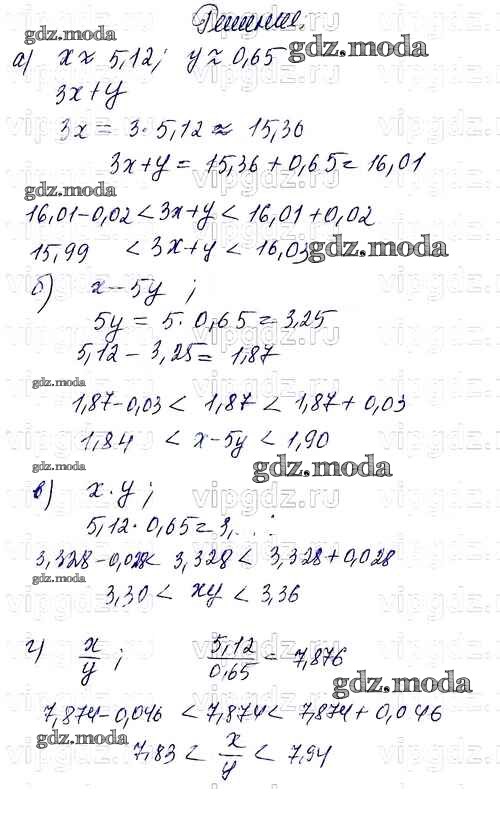 Решение.
gdz.moda
а) x ≈ 5,12; y ≈ 0,65
3x+y
3x = 3·5,12 ≈ 15,36
3x+y = 15,36 + 0,65 = 16,01
gdz.moda
16,01-0,02 < 3x+y < 16,01+0,02
15,99 < 3x+y < 16,03
gdz.moda
б) x-5y ;
5y = 5·0,65 = 3,25
5,12 - 3,25 = 1,87
gdz.moda
1,87-0,03 < 1,87 < 1,87 + 0,03
1,84 < x-5y < 1,90
gdz.moda
в) x·y ;
5,12·0,65 = 3,
3,328-0,028 < 3,328 < 3,328+0,028
gdz.moda
3,30 < xy < 3,36
г) x/y ; 5,12/0,65 = 7,876
gdz.moda
7,874-0,046 < 7,874 < 7,874+0,046
7,83 < x/y < 7,94
vipgdz.ru